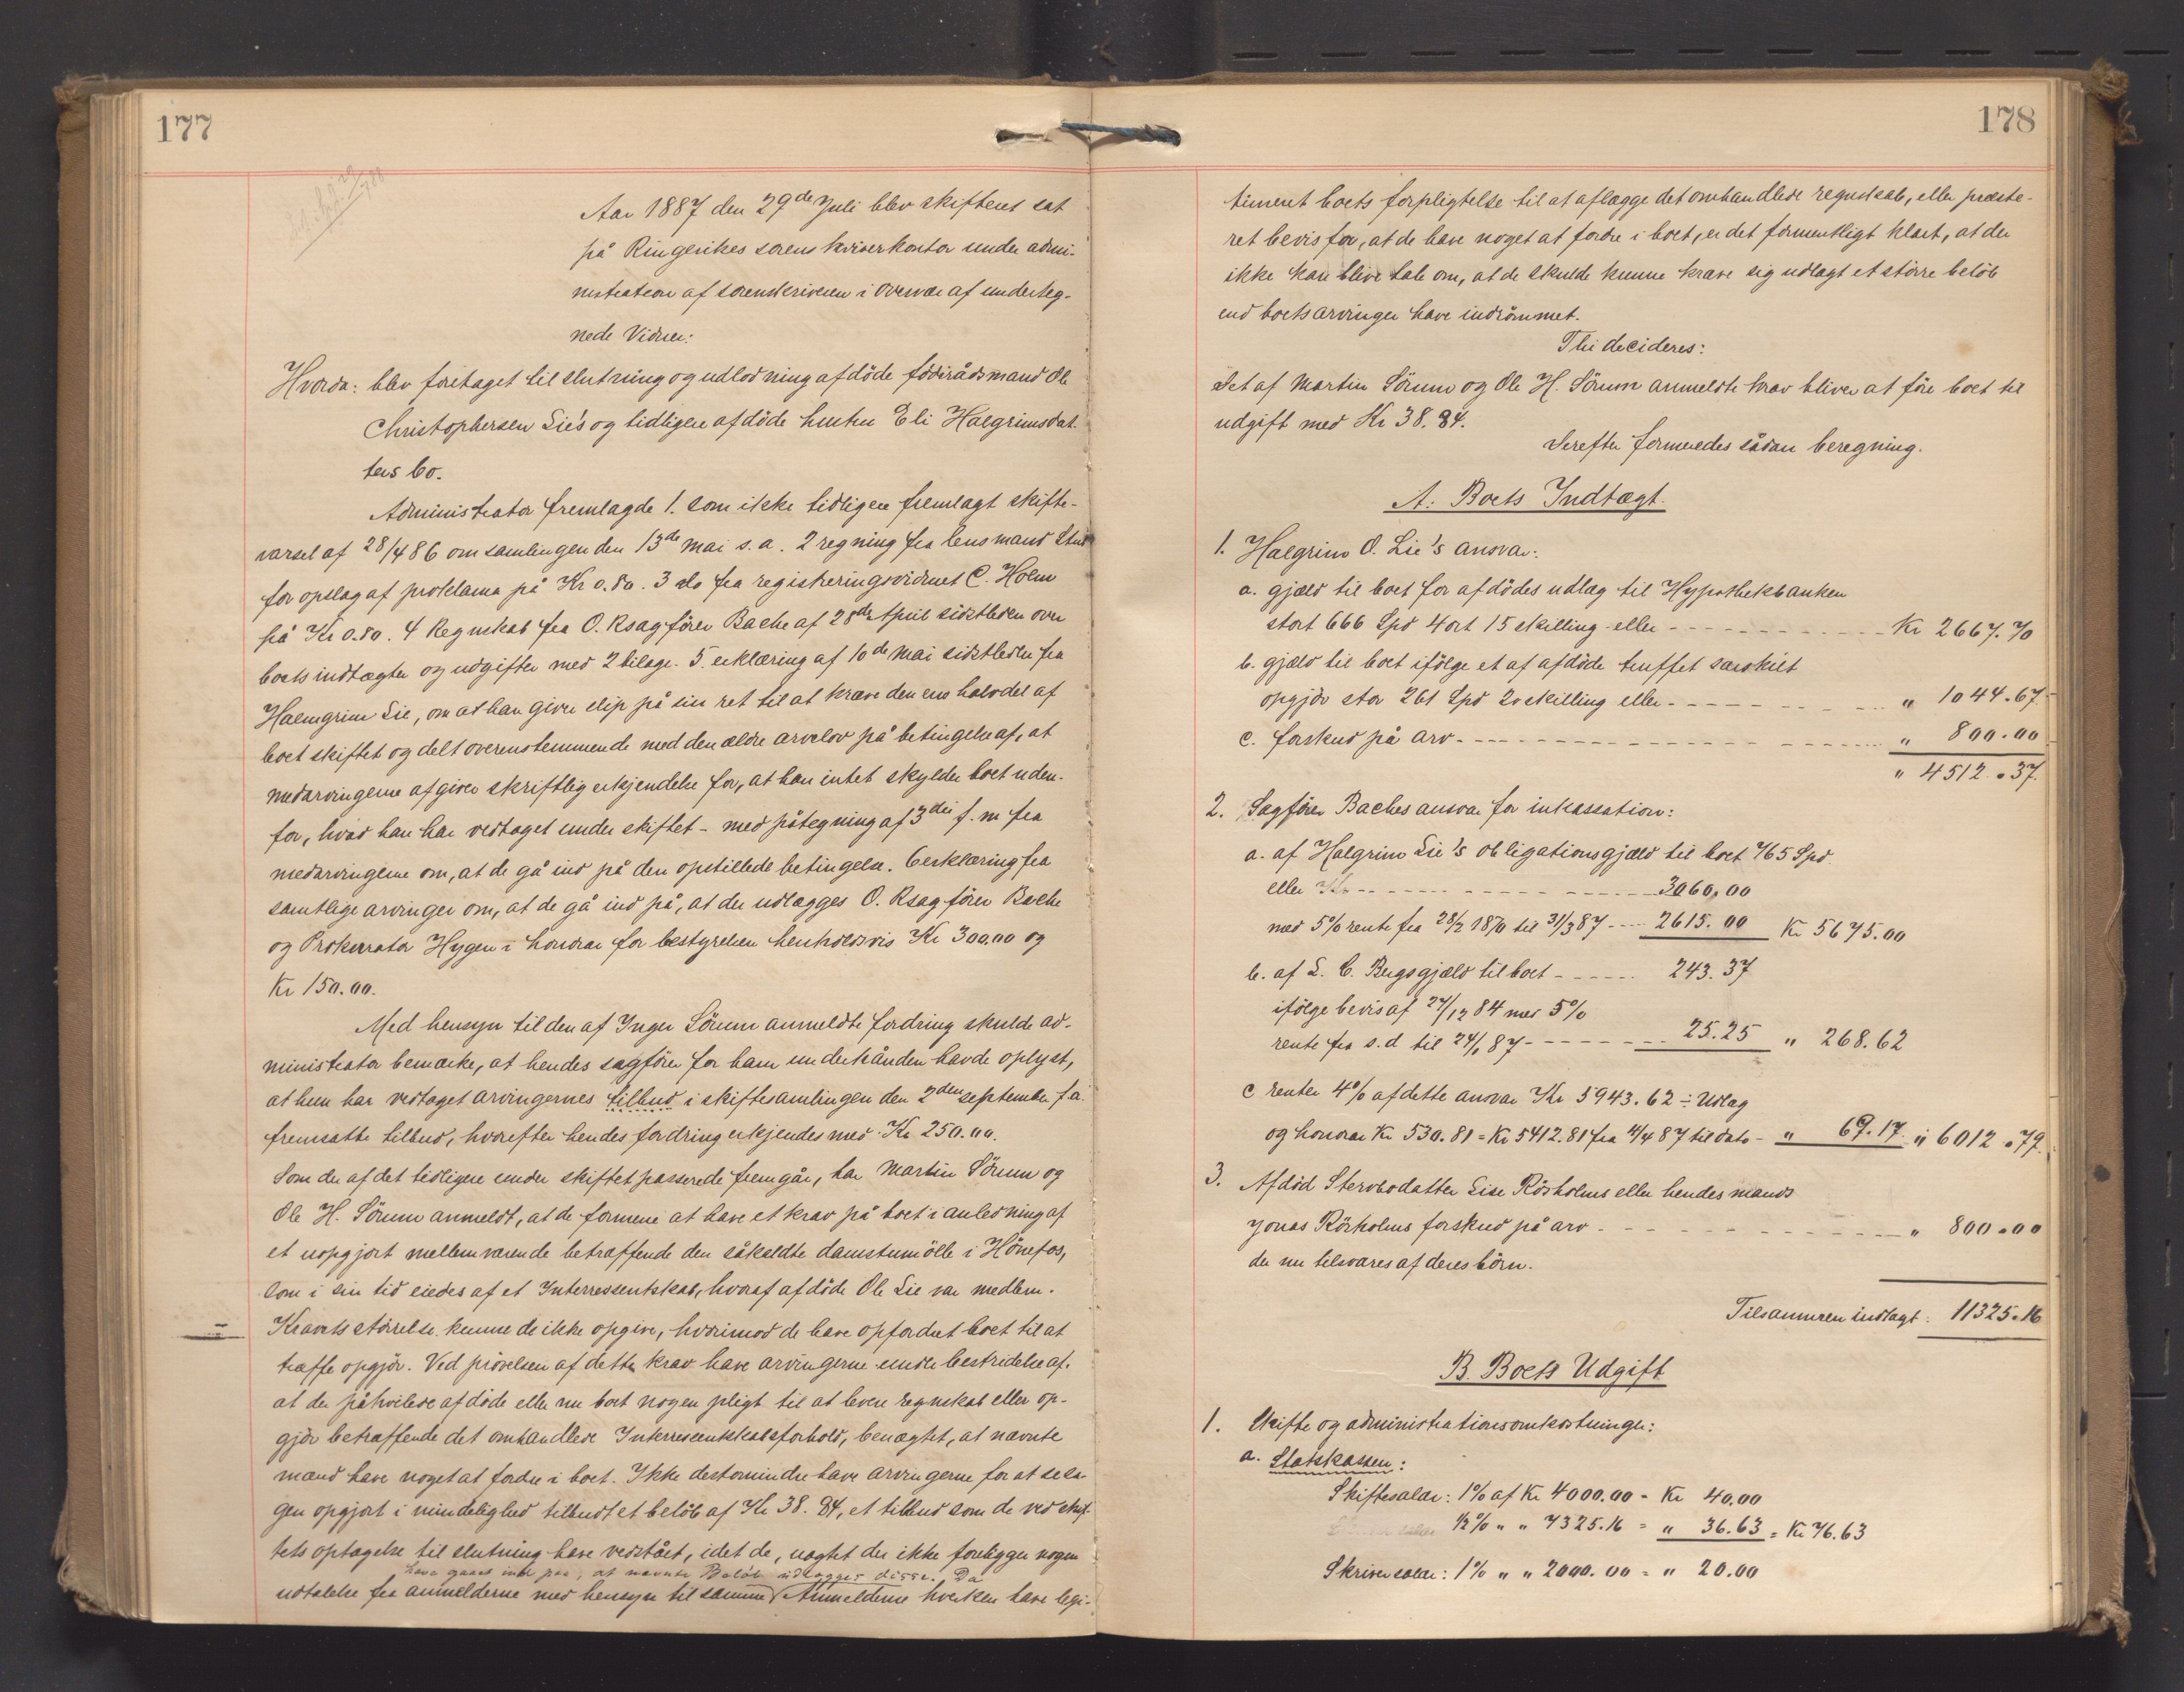 177
Aar 1887 den 29de Juli blev skifteret sat
på Ringerikes sorenskriverkontor under admi-
nistration af sorenskriveren i overvær af underteg-
nede Vidner:
Hvorda: blev foretaget til slutning og udlodning afdöde föderådsmand Ole
Christophersen Lie's og tidligere afdöde hustru Eli Halgrimsdat-
ters bo.
Administrator fremlagde 1. som ikke tidligere fremlagt skifte-
varsel af 28/4 86 om samlingen den 13de Mai s. a. 2 regning fra lensmand
for opslag af proklama på Kr 0.80. 3 do fra registreringsvidnet C. Holm
på Kr 0.80. 4 Regnskab fra O. Rsagförer Bache af 28de April sidstleden over
boets indtægter og udgifter med 2 bilage. 5. erklæring af 10de Mai sidstleden fra
Halmgrim Lie, om at han giver slip på sin ret til at kræve den ene halvdel af
boet skiftet og delt overensstemmende med den ældre arvelov på betingelse af, at
medarvingerne afgiver skriftlig erkjendelse for, at han intet skylder boet uden-
for, hvad han har vedtaget under skiftet - med påtegning af 3die f. m fra
medarvingerne om, at de gå ind på den opstillede betingelse. 6 erklæring fra
samtlige arvinger om, at de gå ind på, at der udlægges O. Rsagförer Bache
og Prokurator Hygen i honorar for bestyrelsen henholdsvis Kr 300.00 og
Kr 150.00.
Med hensyn til den af Inger Sörum anmeldte fordring skulde ad-
ministrator bemærke, at hendes sagförer for ham underhånden havde oplyst,
at hun har vedtaget arvingernes tilbud i skiftesamlingen den 2den september f. a.
fremsatte tilbud, hvorefter hendes fordring erkjendes med Kr 250.00.
Som der af det tidligere under skiftet passerede fremgår, har Martin Sörum og
Ole H. Sörum anmeldt, at de formene at have et krav på boet i anledning af
et uopgjort mellemværende betræffende den såkaldte damstemölle i Hönefos,
som i sin tid eiedes af et Interressentskab, hvoraf afdöde Ole Lie var medlem.
Kravets störrelse kunne de ikke opgive, hvorimod de have opfordret boet til at
træffe opgjör. Ved prövelsen af dette krav have arvingerne under bestridelse af,
at der påhvilede afdöde eller nu boet nogen pligt til at levere regnskab eller op-
gjör betræffende det omhandlede Interressentskabsforhold, benægtet, at nævnte
mænd have noget at fordre i boet. Ikke destomindre have arvingerne for at se sa-
gen opgjort i mindelighed tilbudt et belöb af Kr 38.84, et tilbud som de ved skif-
tets optagelse til slutning have vedstået, idet de, uagtet der ikke foreligger nogen
have gaaet ind paa, at nævnte Beløb udlægges disse. Da
udtalelse fra anmelderne med hensyn til samme Anmelderne hverken have legi-
178
timeret boets forpligtelse til at aflægge det omhandlede regnskab, eller præste-
ret bevis for, at de have noget at fordre i boet, er det formentligt klart, at der
ikke kan blive tale om, at de skulde kunne kræve sig udlagt et större belöb
end boets arvinger have indrömmet.
Thi decideres:
Det af Martin Sörum og Ole H. Sörum anmeldte krav bliver at före boet til
udgift med Kr 38.84.
Derefter formeredes sådan beregning.
A: Boets Indtægt.
1. Halgrim O. Lie's ansvar:
a. gjæld til boet for afdödes udlæg til Hypothekbanken
stort 666 Spd 4 ort 15 skilling eller - Kr 2667.70
b. gjæld til boet ifölge et af afdöde truffet særskilt
opgjör stor 261 Spd 20 skilling eller - " 1044.67
c. forskud på arv - " 800.00
" 4512.37.
2. Sagförer Baches ansvar for inkassation:
a. af Halgrim Lie's obligationsgjæld til boet 765 Spd.
eller Kr - 3060.00
med 5% rente fra 28/2 1870 til 31/3 87 - 2615.00 Kr 5675.00
b. af L. C. Bugs gjæld til boet - 243.37
ifölge bevis af 27/12 84 med 5%
rente fra s.d til 24/1 87 - 25.25 " 268.62
c renter 4% af dette ansvar Kr 5943.62 ÷ Udlæg
og honorar Kr 530.81 = Kr 5412.81 fra 4/4 87 til dato - " 69.17 " 6012.79.
3. Afdöd Stervbodatter Lise Rörholms eller hendes mands
Jonas Rörholms forskud på arv - " 800.00
der nu tilsvares af deres börn.
Tilsammen indtægt: 11325.16
B. Boets Udgift
1. Skifte og administrationsomkostninger:
a. Statskassen:
Skiftesalær: 1% af Kr 4000.00 = Kr 40.00
1/2 % " " 7325.16 = " 36.63 = Kr 76.63
Skriversalær: 1% " " 2000.00 = " 20.00